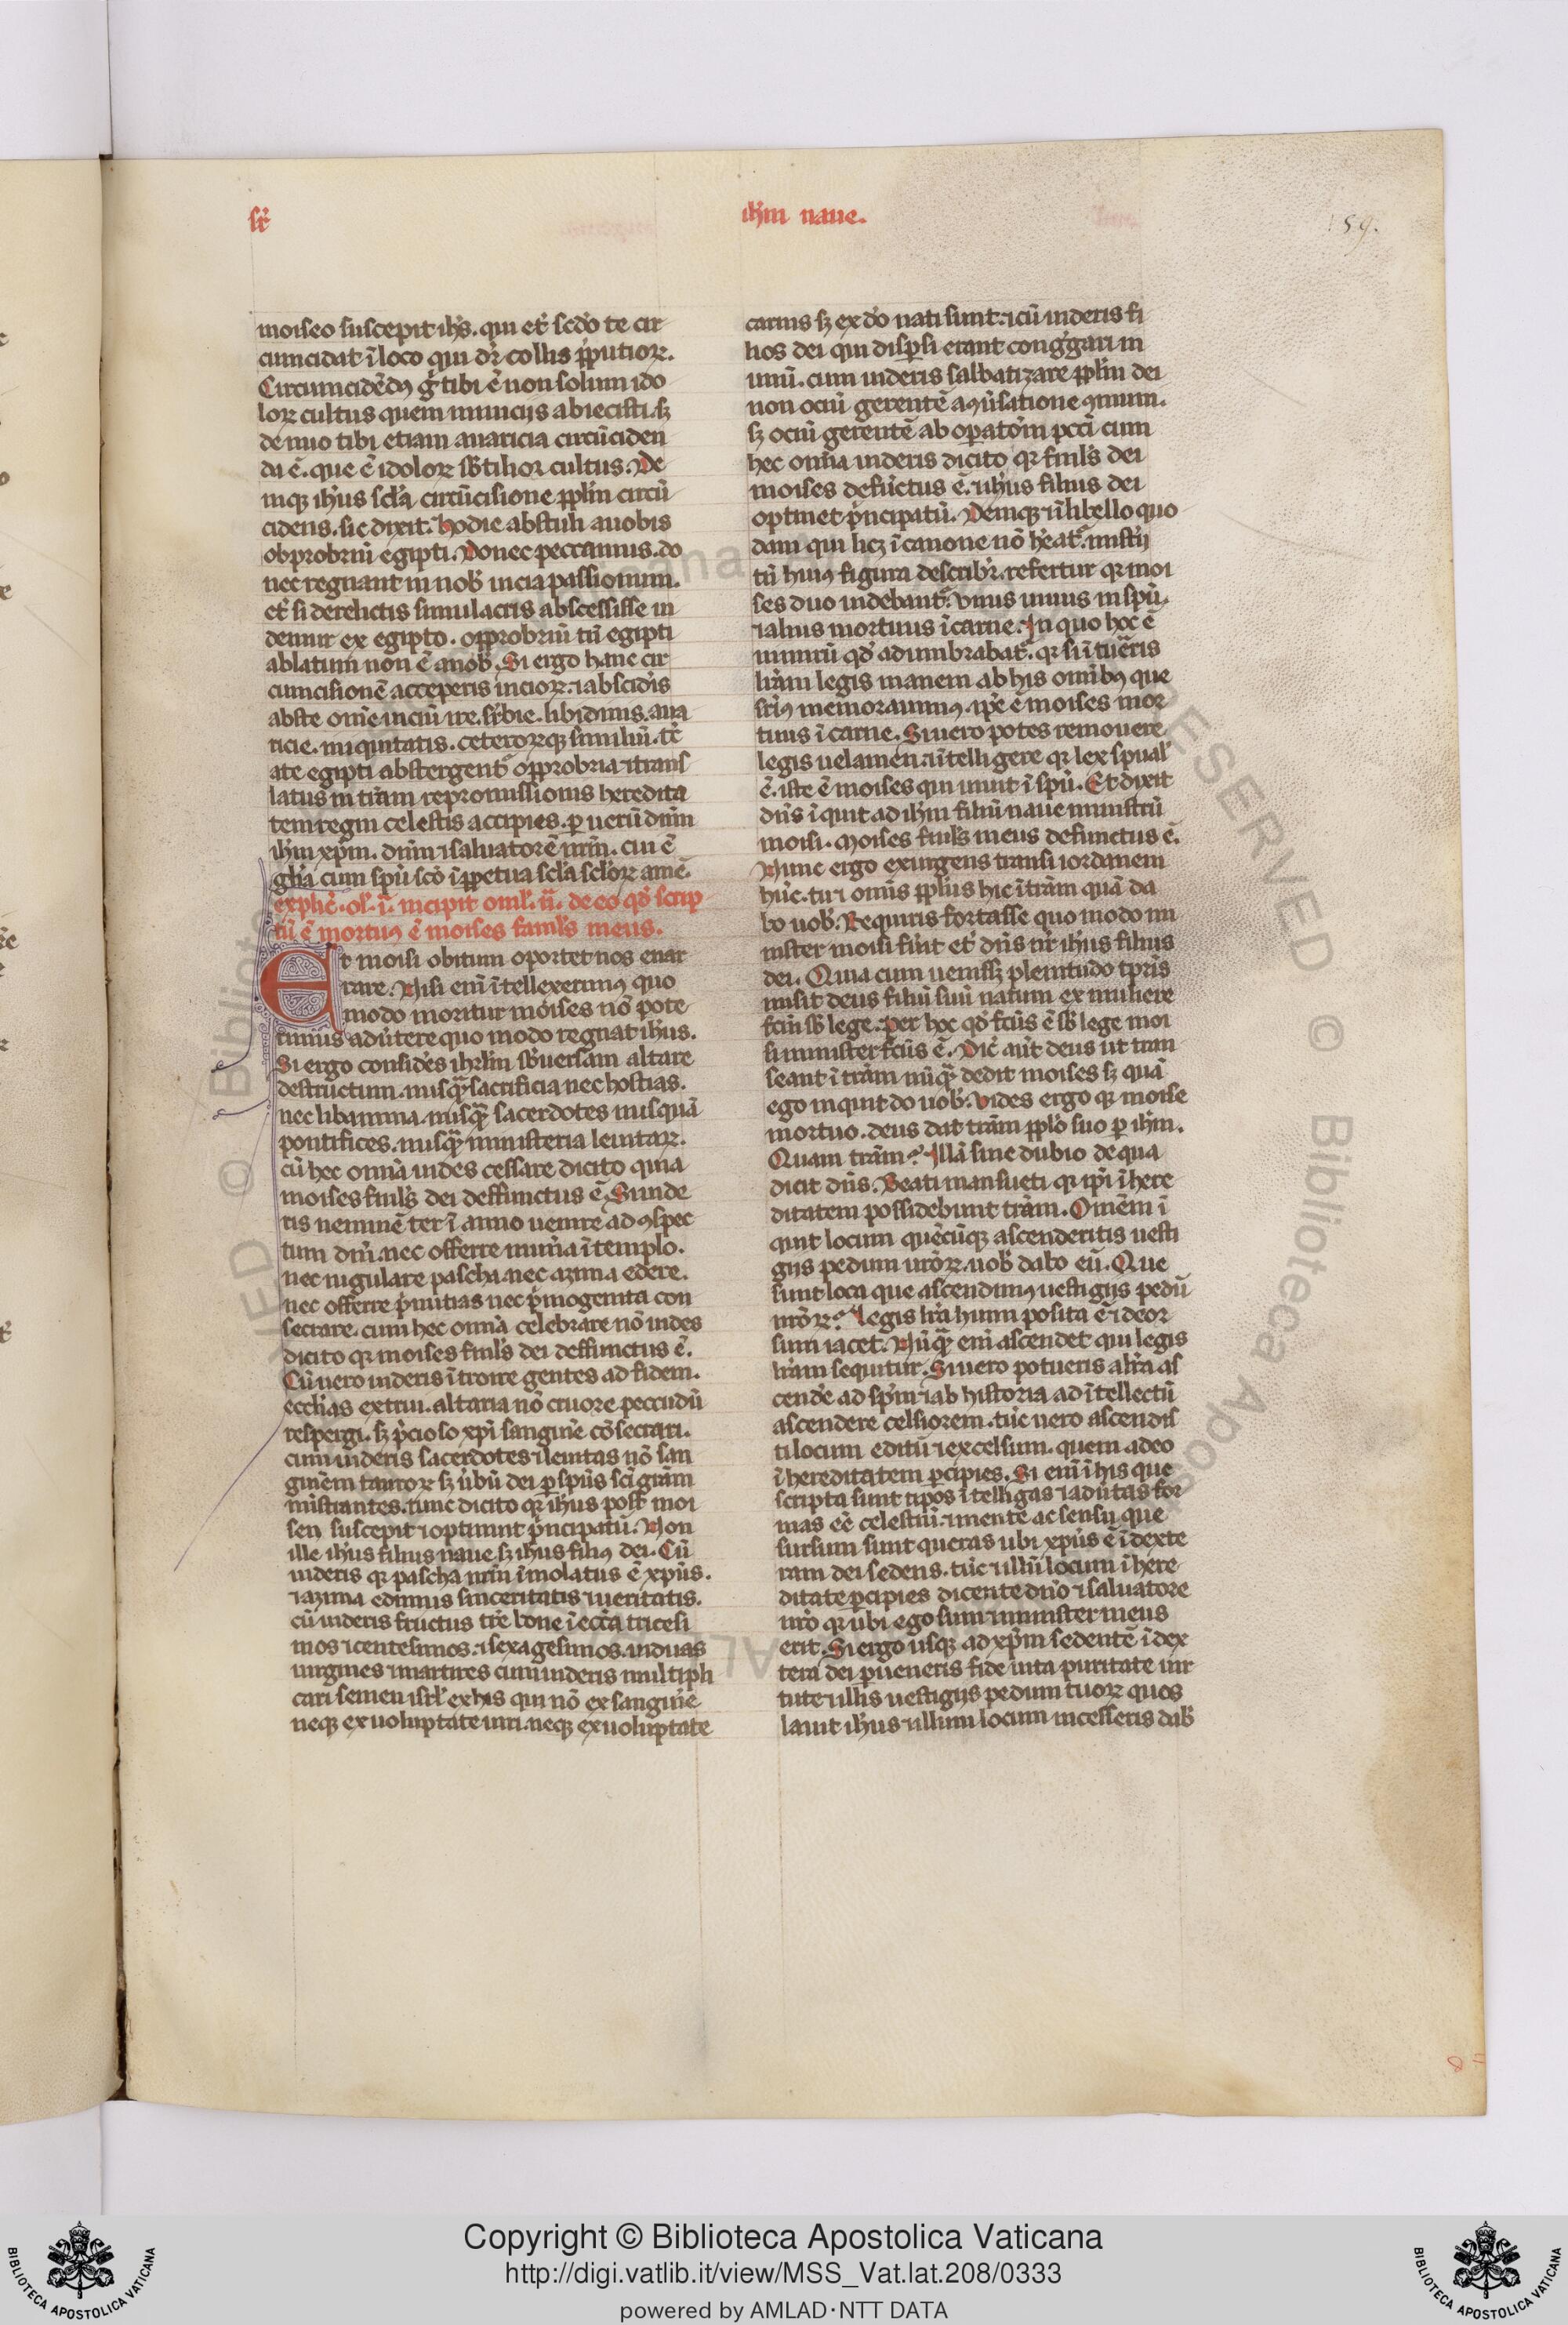 sr̃
ih̃m naue.
159.
moiseo suscepit ih̃s. qui et̃ sc̃do te cir
cumcidat ĩ loco qui dr̃ collis p̃putioꝝ.
Circumcidẽdꝰ g̃ tibi ẽ non solum ido
loꝝ cultus quem nunciis abiecisti. sꝫ
denuo tibi etiam auaricia circũciden
da ẽ. que ẽ idoloꝝ sb̃tilior cultus. De
niqꝫ ih̃us scl̃a circũcisione ppl̃m circũ
cidens. sic dixit. hodie abstuli auobis
obprobriũ egipti. Donec peccamus. do
nec regnant in nob̃ uicia passionum.
et̃ si derelictis simulacris abscessisse ui
demur ex egipto. opprobriũ tñ egipti
ablatum non ẽ anob̃. Si ergo hanc cir
cumcisionẽ acceperis uicioꝝ. ⁊ abscid̃is
abste om̃e uiciũ ire. sr̃bie. libidinis. aua
ricie. iniquitatis. ceteroꝝqꝫ similiũ. tc̃
ate egipti abstergent̃ opprobria ⁊ trans
latus in tr̃am repromissionis heredita
tem regni celestis accipies. ꝑ uerũ dñm
ih̃m xp̃m. dñm ⁊ saluatorẽ nr̃m. cui ẽ
gl̃ia cum sp̃u sc̃o ĩ ꝑpetua scl̃a scl̃oꝝ amẽ.
explic̃. ol̃. ĩ. incipit oml̃. ij̃. de eo qđ scrip
tũ ẽ mortuꝰ ẽ moises faml̃s meus.
Et moisi obitum oportet nos enar
rare. Nisi eñi ĩtellexerimꝰ quo
modo moritur moises nõ pote
rimus aduĩtere quo modo regnat ih̃us.
Si ergo consid̃es ihrl̃m sb̃uersam altare
destructum. nusq̃ꝫ sacrificia nec hostias.
nec libamina. nusq̃ꝫ sacerdotes nusquã
pontifices. nusq̃ꝫ ministeria leuitaꝝ.
cũ hec omñia uides cessare dicito quia
moises faml̃s dei deffunctus ẽ. Si uide
ris neminẽ ter ĩ anno uenire ad ꝯspec
tum dñi. nec offerre mun̾a ĩ templo.
nec iugulare pascha. nec azima edere.
nec offerre p̾mitias nec p̾mogenita con
secrare. cum hec omñia celebrare nõ uides
dicito qꝛ moises faml̃s dei deffunctus ẽ.
Cũ uero uideris ĩtroire gentes ad fidem.
eccl̃ias extrui. altaria nõ cruore peccudũ
respergi. sꝫ p̾cioso xp̃i sanguĩe cõsecrari.
cum uideris sacerdotes ⁊ leuitas nõ san
guinẽm tauroꝝ sꝫ ũbũ dei ꝑ sp̃us sc̃i gr̃am
mĩstrantes. tunc dicito qꝛ ih̃us post moi
sen suscepit ⁊ optinuit p̾ncipatũ. Non
ille ih̃us filius naue sꝫ ih̃us filiꝰ dei. Cũ
uideris qꝛ pascha nr̃m ĩmolatus ẽ xp̃us.
⁊ azima edimus sinceritatis ⁊ ueritatis.
cũ uideris fructus tr̃e bone ĩ ecc̃ia tricesi
mos ⁊ centesimos. ⁊ sexagesimos. uiduas
uirgines ⁊ martires cum uideris multipli
cari semen isrl̃ ex his qui nõ ex sanguĩe
neqꝫ ex uoluptate uiri. neqꝫ ex uoluptate
carnis sꝫ ex đo nati sunt. ⁊ cũ uideris fi
lios dei qui disꝑsi erant cong̾gari in
unũ. cum uideris salbatizare ppl̃m dei
non ociũ gerentẽ a ꝯũsatione ꝯmuni.
sꝫ ociũ gerentẽ ab oꝑatõm pcc̃i cum
hec omñia uideris dicito qꝛ faml̃s dei
moises defũctus ẽ. ⁊ ih̃us filius dei
optinet p̾ncipatũ. Deniqꝫ ⁊ ĩ libello quo
dam qui licꝫ ĩ canone nõ hẽat̃. mist̾ij
tñ huiꝰ figura describr̃. refertur qꝛ moi
ses duo uidebant̃. Vnus uiuus in sp̃u.
⁊ alius mortuus ĩ carne. In quo hoc ẽ
nimirũ qđ adumbrabat̃. qꝛ si ĩtuẽris
lr̃am legis inanem ab his omĩbꝰ que
sc̾iꝰ memorauimꝰ. ip̃e ẽ moises mor
tuus ĩ carne. Si uero potes remouere
legis uelamen. ⁊ ĩtelligere qꝛ lex sp̃ual̃
ẽ. iste ẽ moises qui uiuit ĩ sp̃u. Et dixit
dñs ĩquit ad ih̃m filiũ naue ministrũ
moisi. Moises faml̃s meus defunctus ẽ.
Nunc ergo exurgens transi iordanem
hũc. tu ⁊ omñis ppl̃us hic ĩ tr̃am quã da
bo uob̃. Requiris fortasse quo modo mi
nister moisi fũit et̃ dñs nr̃ ih̃us filius
dei. Quia cum uenissꝫ plenitudo tꝑris
misit deus filiũ suũ natum ex muliere
fc̃m sb̃ lege. Per hoc qđ fc̃us ẽ sb̃ lege moi
si minister fc̃us ẽ. Dic̃ aũt deus ut tran
seant ĩ tr̃am nũq̃ꝫ dedit moises sꝫ quã
ego inquit do uob̃. Vides ergo qꝛ moise
mortuo. deus dat tr̃am ppl̃o suo ꝑ ih̃m.
Quam tr̃am? Illã sine dubio de qua
dicit dñs. Beati mansueti qꝛ ip̃i ĩhere
ditatem possidebunt tr̃am. Omẽm ĩ
quit locum quẽcũqꝫ ascenderitis uesti
giis pedum ur̃oꝝ. uob̃ dabo eũ. Que
sunt loca que ascendimꝰ uestigiis pedũ
nr̃oꝝ? Legis lr̃a humi posita ẽ ⁊ deor
sum iacet. Nũq̃ꝫ eñi ascendet qui legis
lr̃am sequitur. Si uero potueris a lr̃a as
cend̃e ad sp̃m ⁊ ab historia ad ĩtellectũ
ascendere celsiorem. tũc uero ascendis
ti locum editũ ⁊ excelsum. quem a deo
ĩ hereditatem ꝑcipies. Si eñi ĩ his que
scripta sunt tipos ĩtelligas ⁊ aduĩtas for
mas eẽ celestiũ. ⁊ mente ac sensu que
sursum sunt queras ubi xp̃us ẽ ĩ dexte
ram dei sedens. tũc ⁊ illũ locum ĩ here
ditate ꝑcipies dicente dño ⁊ saluatore
nr̃o qꝛ ubi ego sum ⁊ minister meus
erit. Si ergo usqꝫ ad xp̃m sedentẽ ĩ dex
tera dei ꝑueneris fide uita puritate uir
tute ⁊ illis uestigiis pedum tuoꝝ quos
lauit ih̃us ⁊ illum locum incesseris dab̃
Copyright © Biblioteca Apostolica Vaticana
http://digi.vatlib.it/view/MSS_Vat.lat.208/0333
powered by AMLAD·NTT DATA